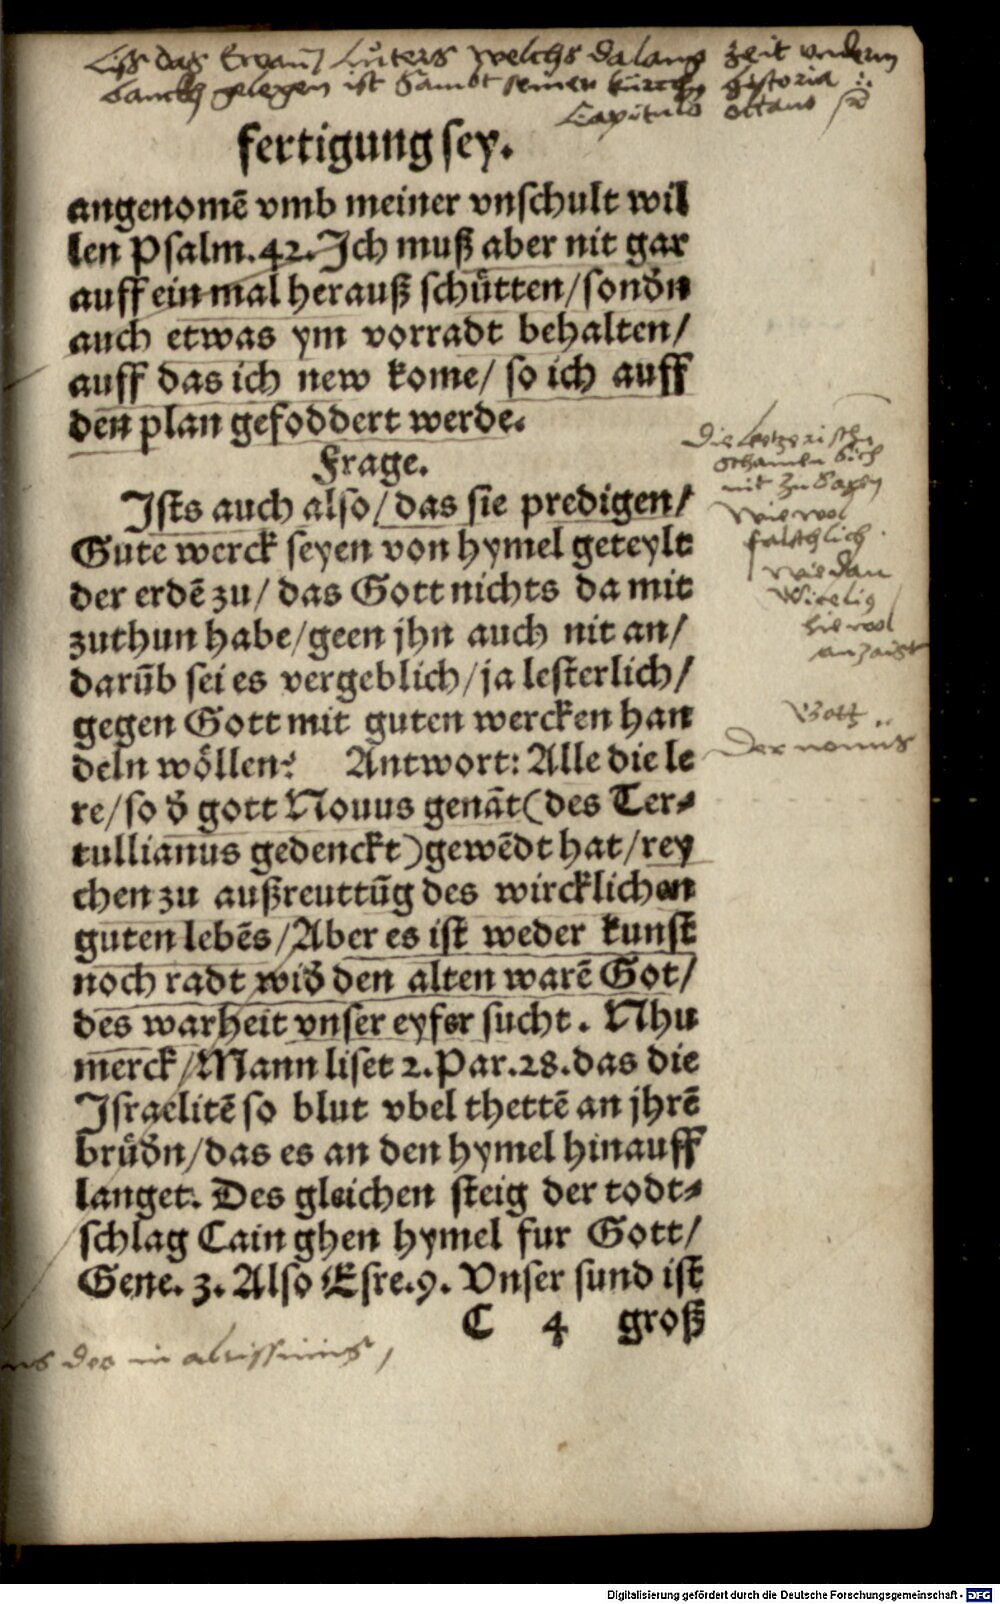 Liss das Evan Luters welchs da lang zeit underm
banckh gelegen ist sambt seiner kirchen historia
Capitulo octavo
fertigung sey.
angenomē vmb meiner vnschult wil
len Psalm. 42. Ich muß aber nit gar
auff ein mal herauß schütten / sondn
auch etwas ym vorradt behalten /
auff das ich new kome / so ich auff
den plan gefoddert werde.
Frage.
Ists auch also / das sie predigen /
Gute werck seyen von hymel geteylt
der erdē zu / das Gott nichts da mit
zuthun habe / geen jhn auch nit an /
darūb sei es vergeblich / ja lesterlich /
gegen Gott mit guten wercken han
deln wöllen? Antwort: Alle die le
re / so d gott Nouus genāt (des Ter⸗
tullianus gedenckt) gewēdt hat / rey
chen zu außreuttūg des wircklichen
guten lebēs / Aber es ist weder kunst
noch radt wid den alten warē Got /
des warheit vnser eyfer sucht. Nhu
merck / Mann liset 2. Par. 28. das die
Israelitē so blut vbel thettē an jhrē
brüdn / das es an den hymel hinauff
langet. Des gleichen steig der todt⸗
schlag Cain ghen hymel fur Gott /
Gene. 3. Also Esre. 9. Vnser sund ist
C 4 groß
Die
schamen sich
nit zu sagen
wiewol
falschlich.
wie dan
Wicelig
hie wol
anzaigt
Gott
Der novus
in altissimis,
Digitalisierung gefördert durch die Deutsche Forschungsgemeinschaft - DFG